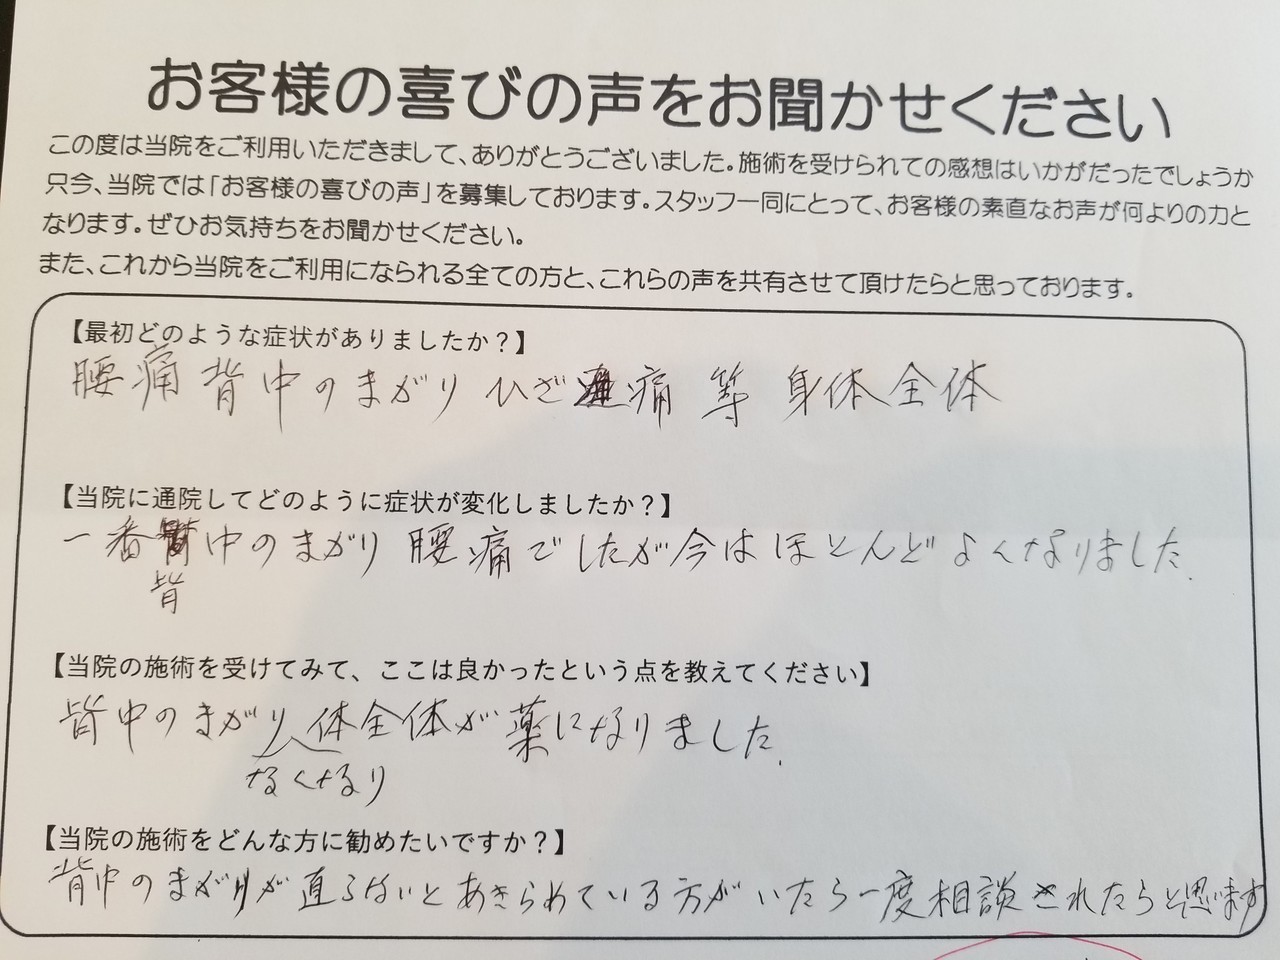 お客様の喜びの声をお聞かせください
この度は当院をご利用いただきまして、ありがとうございました。施術を受けられての感想はいかがだったでしょうか
只今、当院では「お客様の喜びの声」を募集しております。スタッフ一同にとって、お客様の素直なお声が何よりの力と
なります。ぜひお気持ちをお聞かせください。
また、これから当院をご利用になられる全ての方と、これらの声を共有させて頂けたらと思っております。
【最初どのような症状がありましたか？】
腰痛 背中のまがり ひざ痛 等 身体全体
【当院に通院してどのように症状が変化しましたか？】
一番背中のまがり 腰痛でしたが今はほとんどよくなりました.
【当院の施術を受けてみて、ここは良かったという点を教えてください】
背中のまがりなくなり体全体が薬になりました.
【当院の施術をどんな方に勧めたいですか？】
背中のまがりが直らないとあきらめている方がいたら一度相談されたらと思います